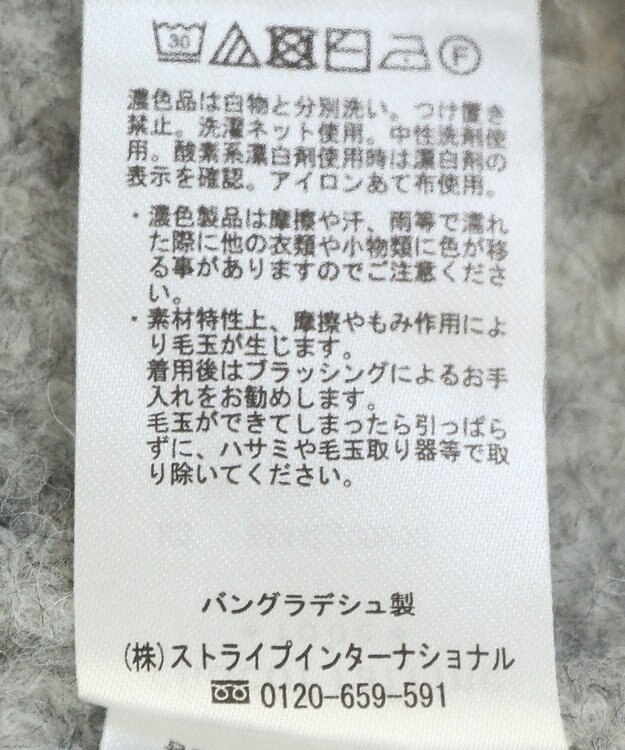 30 F
濃色品は白物と分別洗い。つけ置き
禁止。洗濯ネット使用。中性洗剤使
用。酸素系漂白剤使用時は漂白剤の
表示を確認。アイロンあて布使用。
・濃色製品は摩擦や汗、雨等で濡れ
た際に他の衣類や小物類に色が移
る事がありますのでご注意くださ
い。
・素材特性上、摩擦やもみ作用によ
り毛玉が生じます。
着用後はブラッシングによるお手
入れをお勧めします。
毛玉ができてしまったら引っぱら
ずに、ハサミや毛玉取り器等で取
り除いてください。
バングラデシュ製
(株)ストライプインターナショナル
0120-659-591